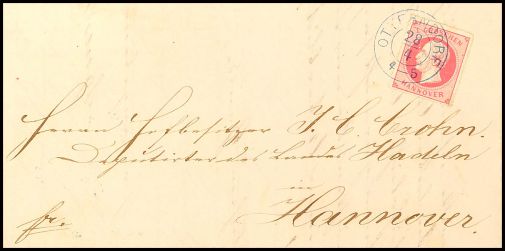 OTTERNDORF
28
4
4-5
GROSCHEN
HANNOVER
Herrn Hofbesitzer J. C. Crohn.
Deputirter des Landes Hadeln
in
Hannover.
fr.